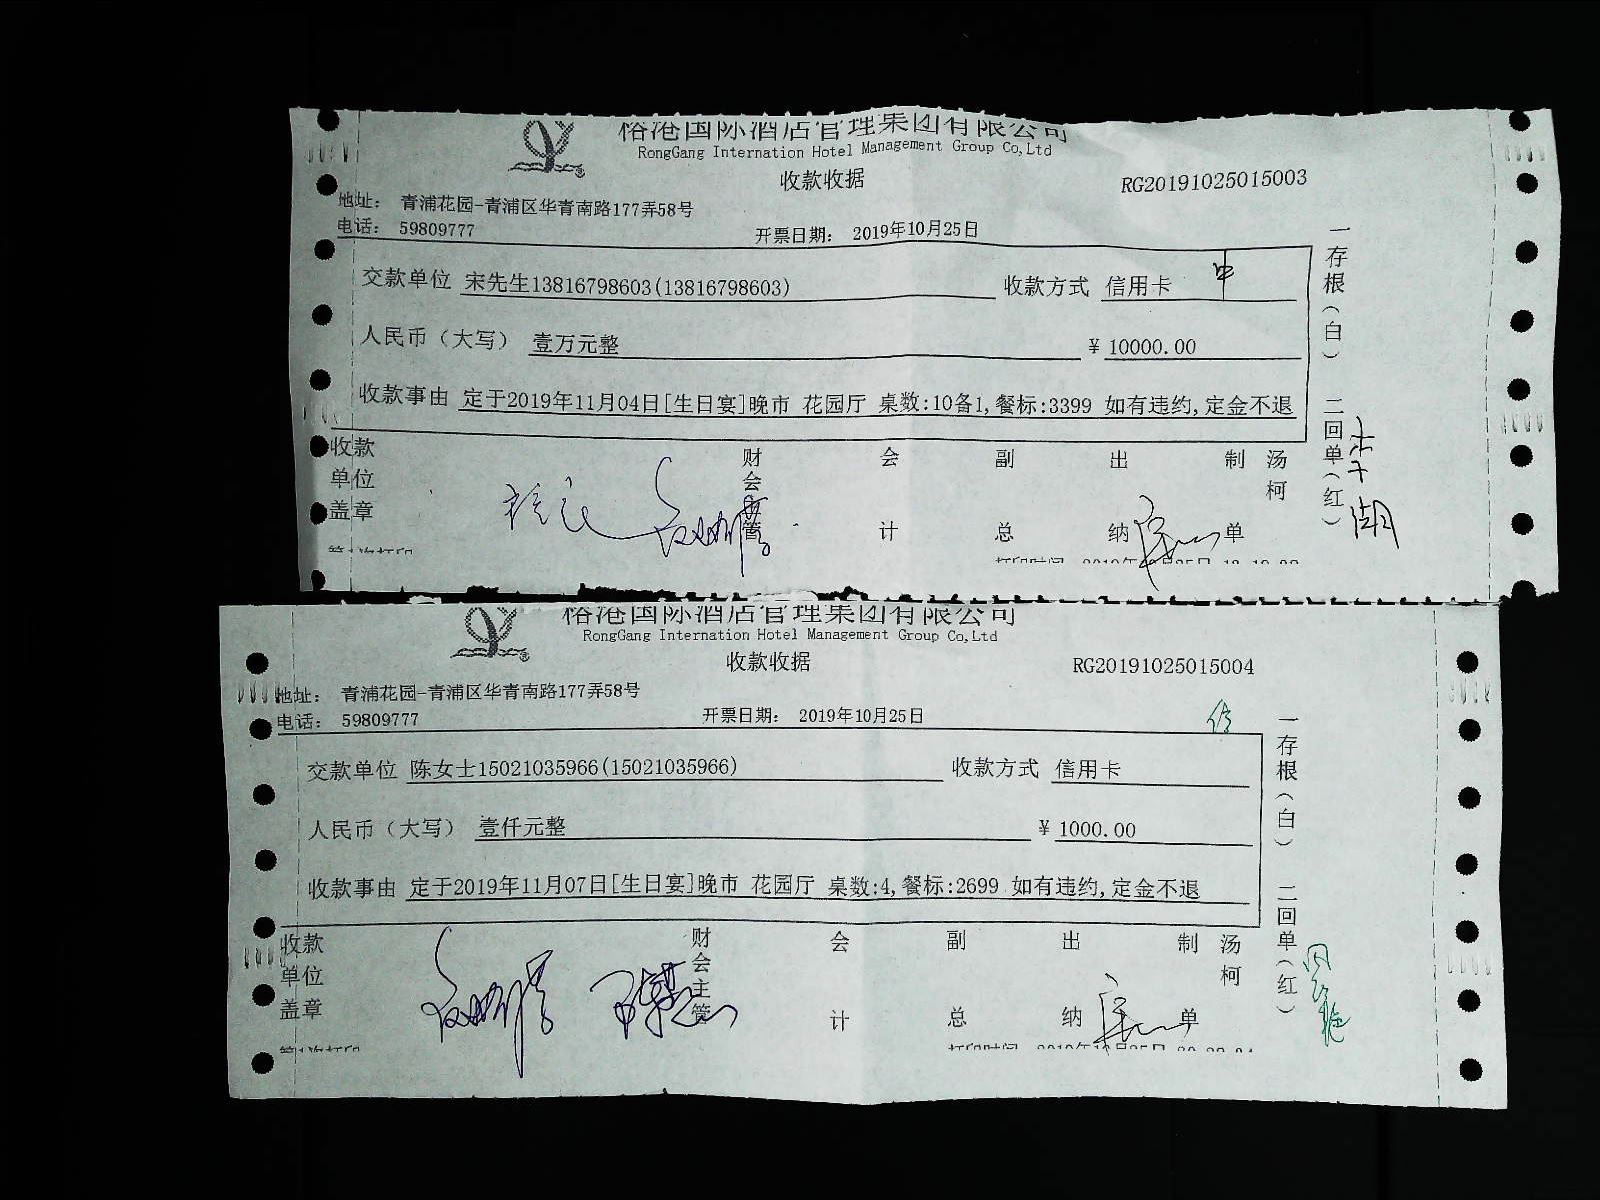 榕港国际酒店管理集团有限公司
RongGang Internation Hotel Management Group Co,Ltd
收款收据
RG20191025015003
地址： 青浦花园-青浦区华青南路177弄58号
电话： 59809777
开票日期： 2019年10月25日
交款单位 宋先生13816798603(13816798603) 收款方式 信用卡
人民币（大写） 壹万元整 ¥ 10000.00
收款事由 定于2019年11月04日[生日宴]晚市 花园厅 桌数:10备1,餐标:3399 如有违约,定金不退
收款单位盖章 财会主管 会计 副总 出纳 制单 汤柯
一存根（白） 二回单（红）
榕港国际酒店管理集团有限公司
RongGang Internation Hotel Management Group Co,Ltd
收款收据
RG20191025015004
地址： 青浦花园-青浦区华青南路177弄58号
电话： 59809777
开票日期： 2019年10月25日
交款单位 陈女士15021035966(15021035966) 收款方式 信用卡
人民币（大写） 壹仟元整 ¥ 1000.00
收款事由 定于2019年11月07日[生日宴]晚市 花园厅 桌数:4,餐标:2699 如有违约,定金不退
收款单位盖章 财会主管 会计 副总 出纳 制单 汤柯
一存根（白） 二回单（红）